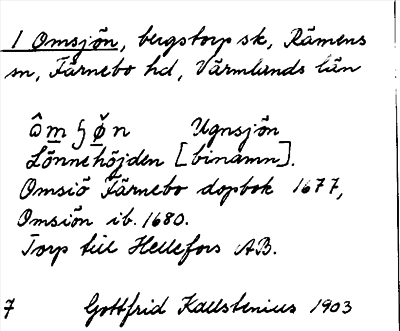 1 Omsjön, bergstorp sk, Rämens
sn, Färnebo hd, Värmlands län
Ugnsjön
Lönnehöjden [binamn].
Omsiö Färnebo dopbok 1677,
Omsiön ib. 1680.
Torp till Hellefors AB.
7 Gottfrid Kallstenius 1903